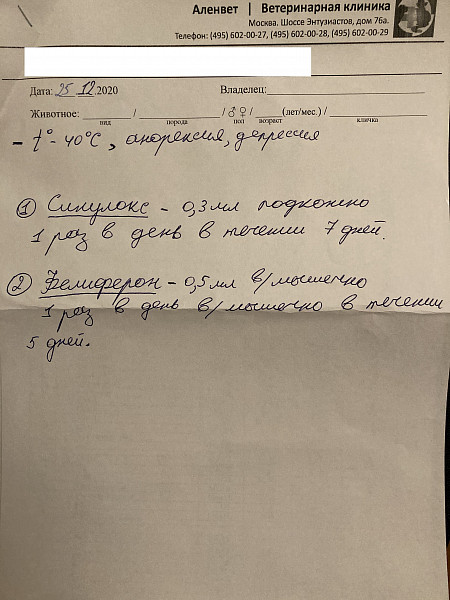 Аленвет | Ветеринарная клиника
Москва. Шоссе Энтузиастов, дом 76а.
Телефон: (495) 602-00-27, (495) 602-00-28, (495) 602-00-29
Дата: 25.12.2020 Владелец:
Животное: / / ♂♀/ (лет/мес.) /
вид порода пол возраст кличка
- t° - 40°C, анорексия, депрессия
① Синулокс - 0,3 мл подкожно
1 раз в день в течении 7 дней.
② Фелиферон - 0,5 мл в/мышечно
1 раз в день в/мышечно в течении
5 дней.